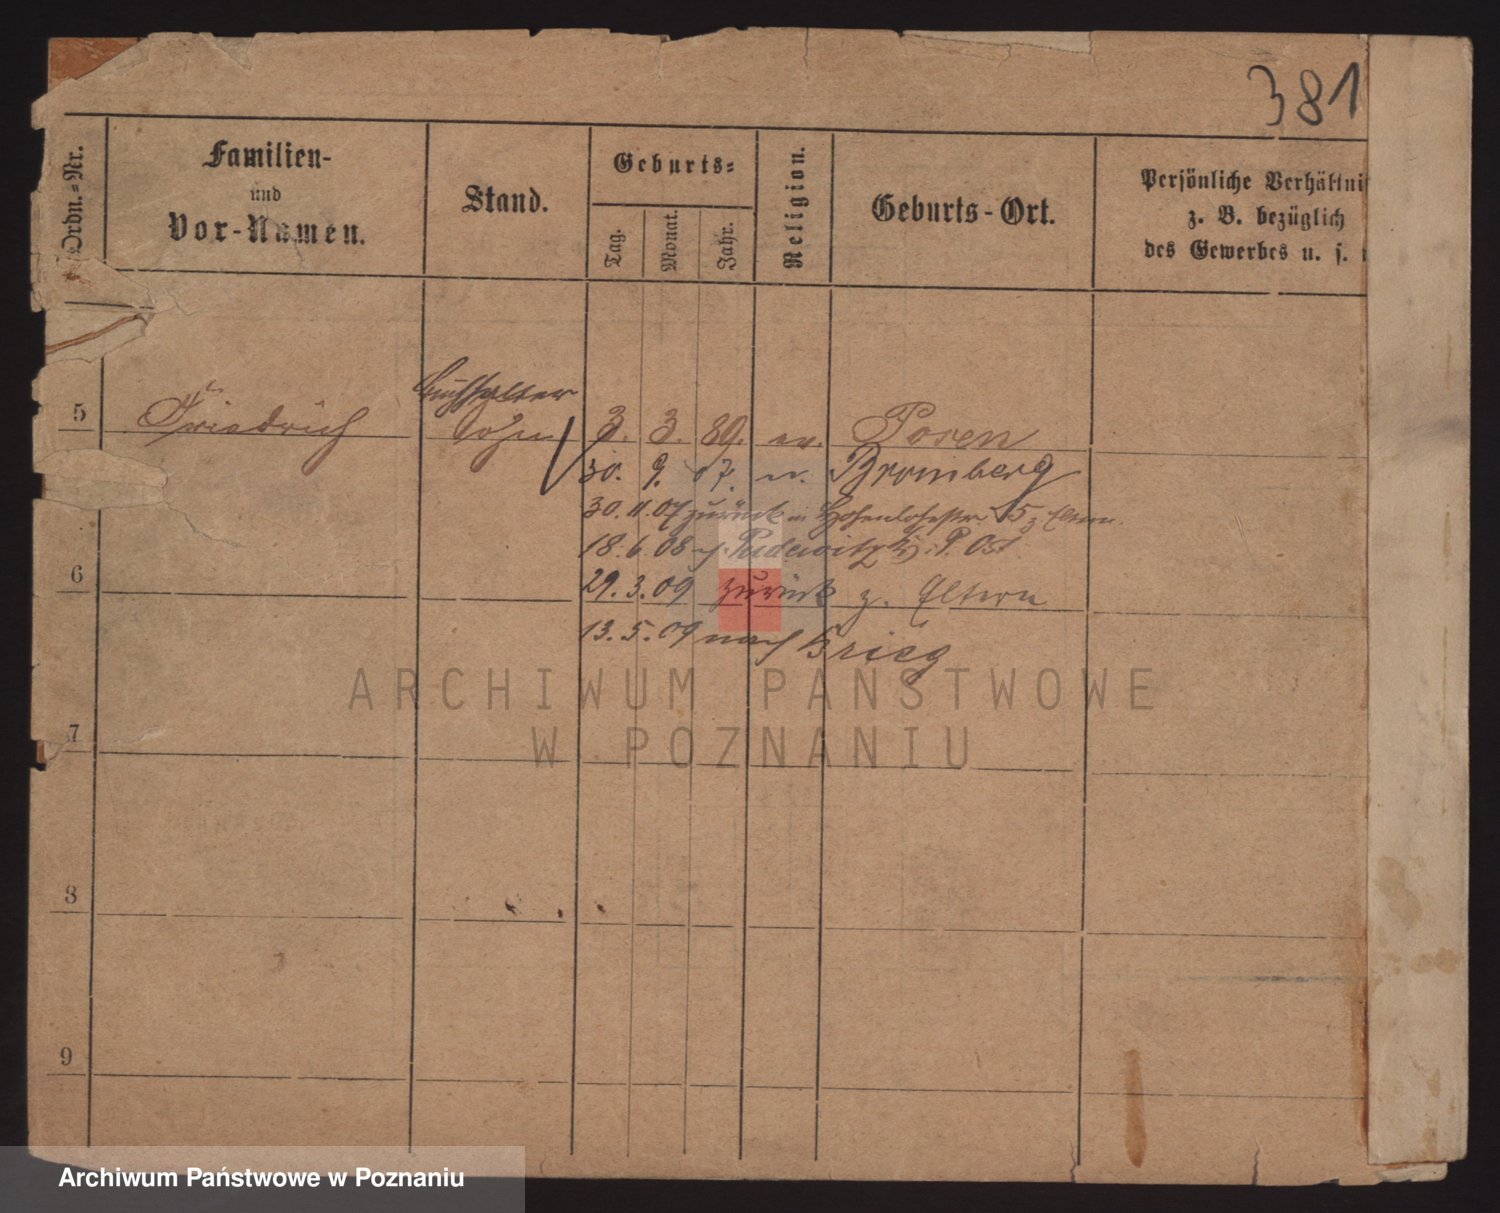 381
Ordn.-Nr.
Familien-
und
Vor-Namen.
Stand.
Geburts-
Tag.
Monat.
Jahr.
Religion.
Geburts-Ort.
Persönliche Verhältni
z. B. bezüglich
des Gewerbes u. s.
5 Friedrich Buchhalter
Sohn 3. 3. 89. ev. Posen
30. 9. 07. n. Bromberg
30.11.07 zurück in Hohenlohestr 5 z Eltern
18.6.08 n. Pudewitz Kr. P. Ost
6 29.3.09 zurück z. Eltern
13.5.09 nach Brieg
ARCHIWUM PAŃSTWOWE
W POZNANIU
7
8
9
Archiwum Państwowe w Poznaniu